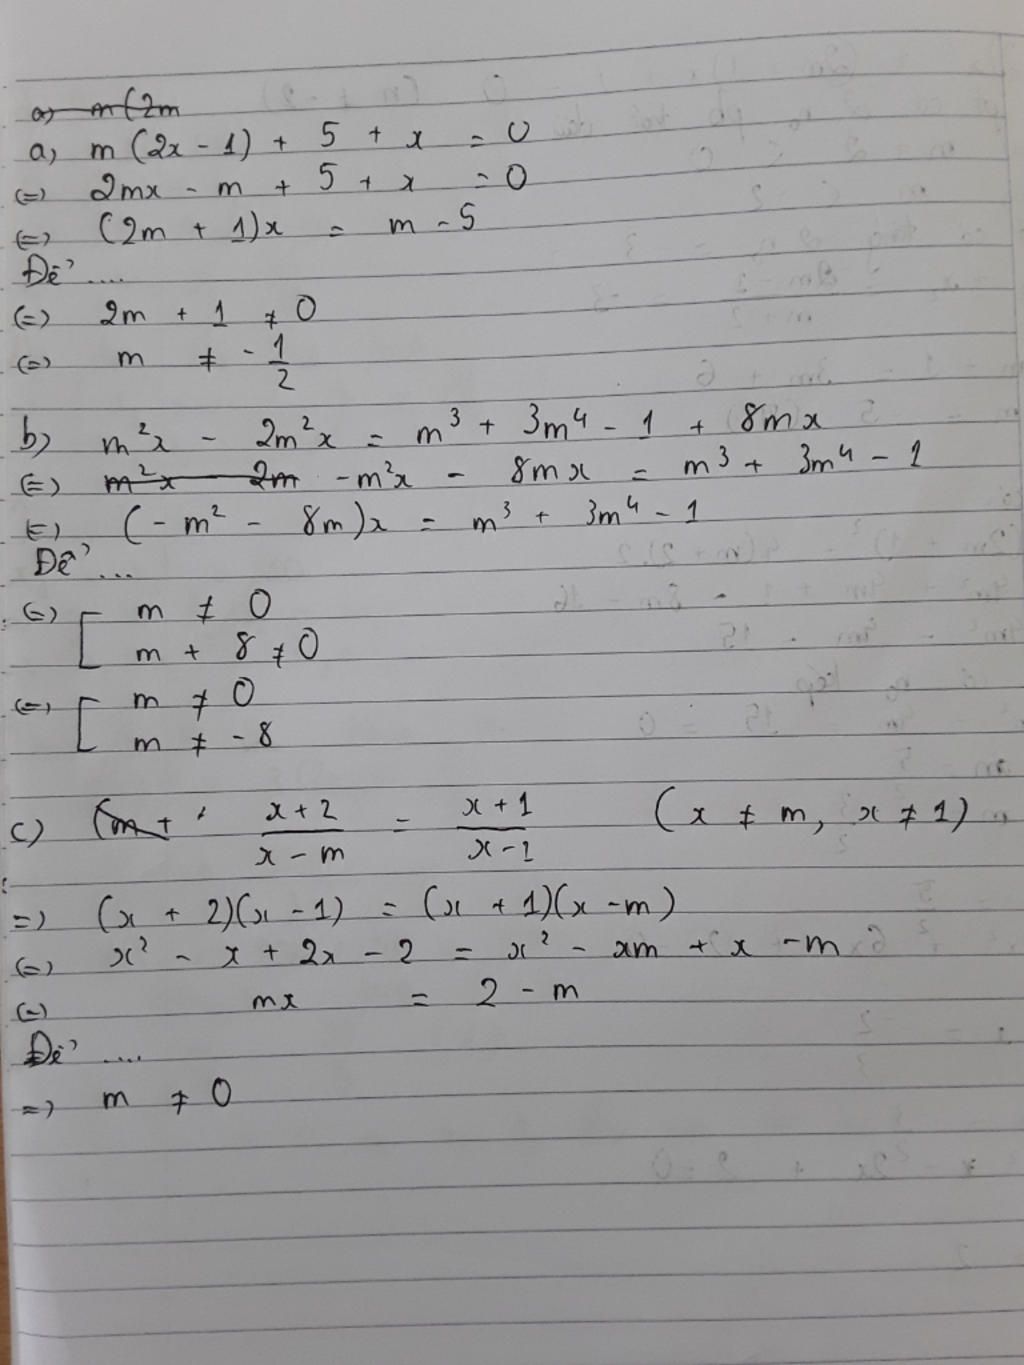 a) m(2m
a) m(2x - 1) + 5 + x = 0
(=) 2mx - m + 5 + x = 0
(=) (2m + 1)x = m - 5
Để ....
(=) 2m + 1 ≠ 0
(=) m ≠ - 1/2
b) m²x - 2m²x = m³ + 3m⁴ - 1 + 8mx
(=) m²x 2m - m²x - 8mx = m³ + 3m⁴ - 1
(=) (-m² - 8m)x = m³ + 3m⁴ - 1
Để ...
(=) [ m ≠ 0
m + 8 ≠ 0
(=) [ m ≠ 0
m ≠ -8
c) (m + x+2/x-m = x+1/x-1 (x ≠ m, x ≠ 1)
=) (x + 2)(x - 1) = (x + 1)(x - m)
(=) x² - x + 2x - 2 = x² - xm + x - m
(=) mx = 2 - m
Để ....
=) m ≠ 0